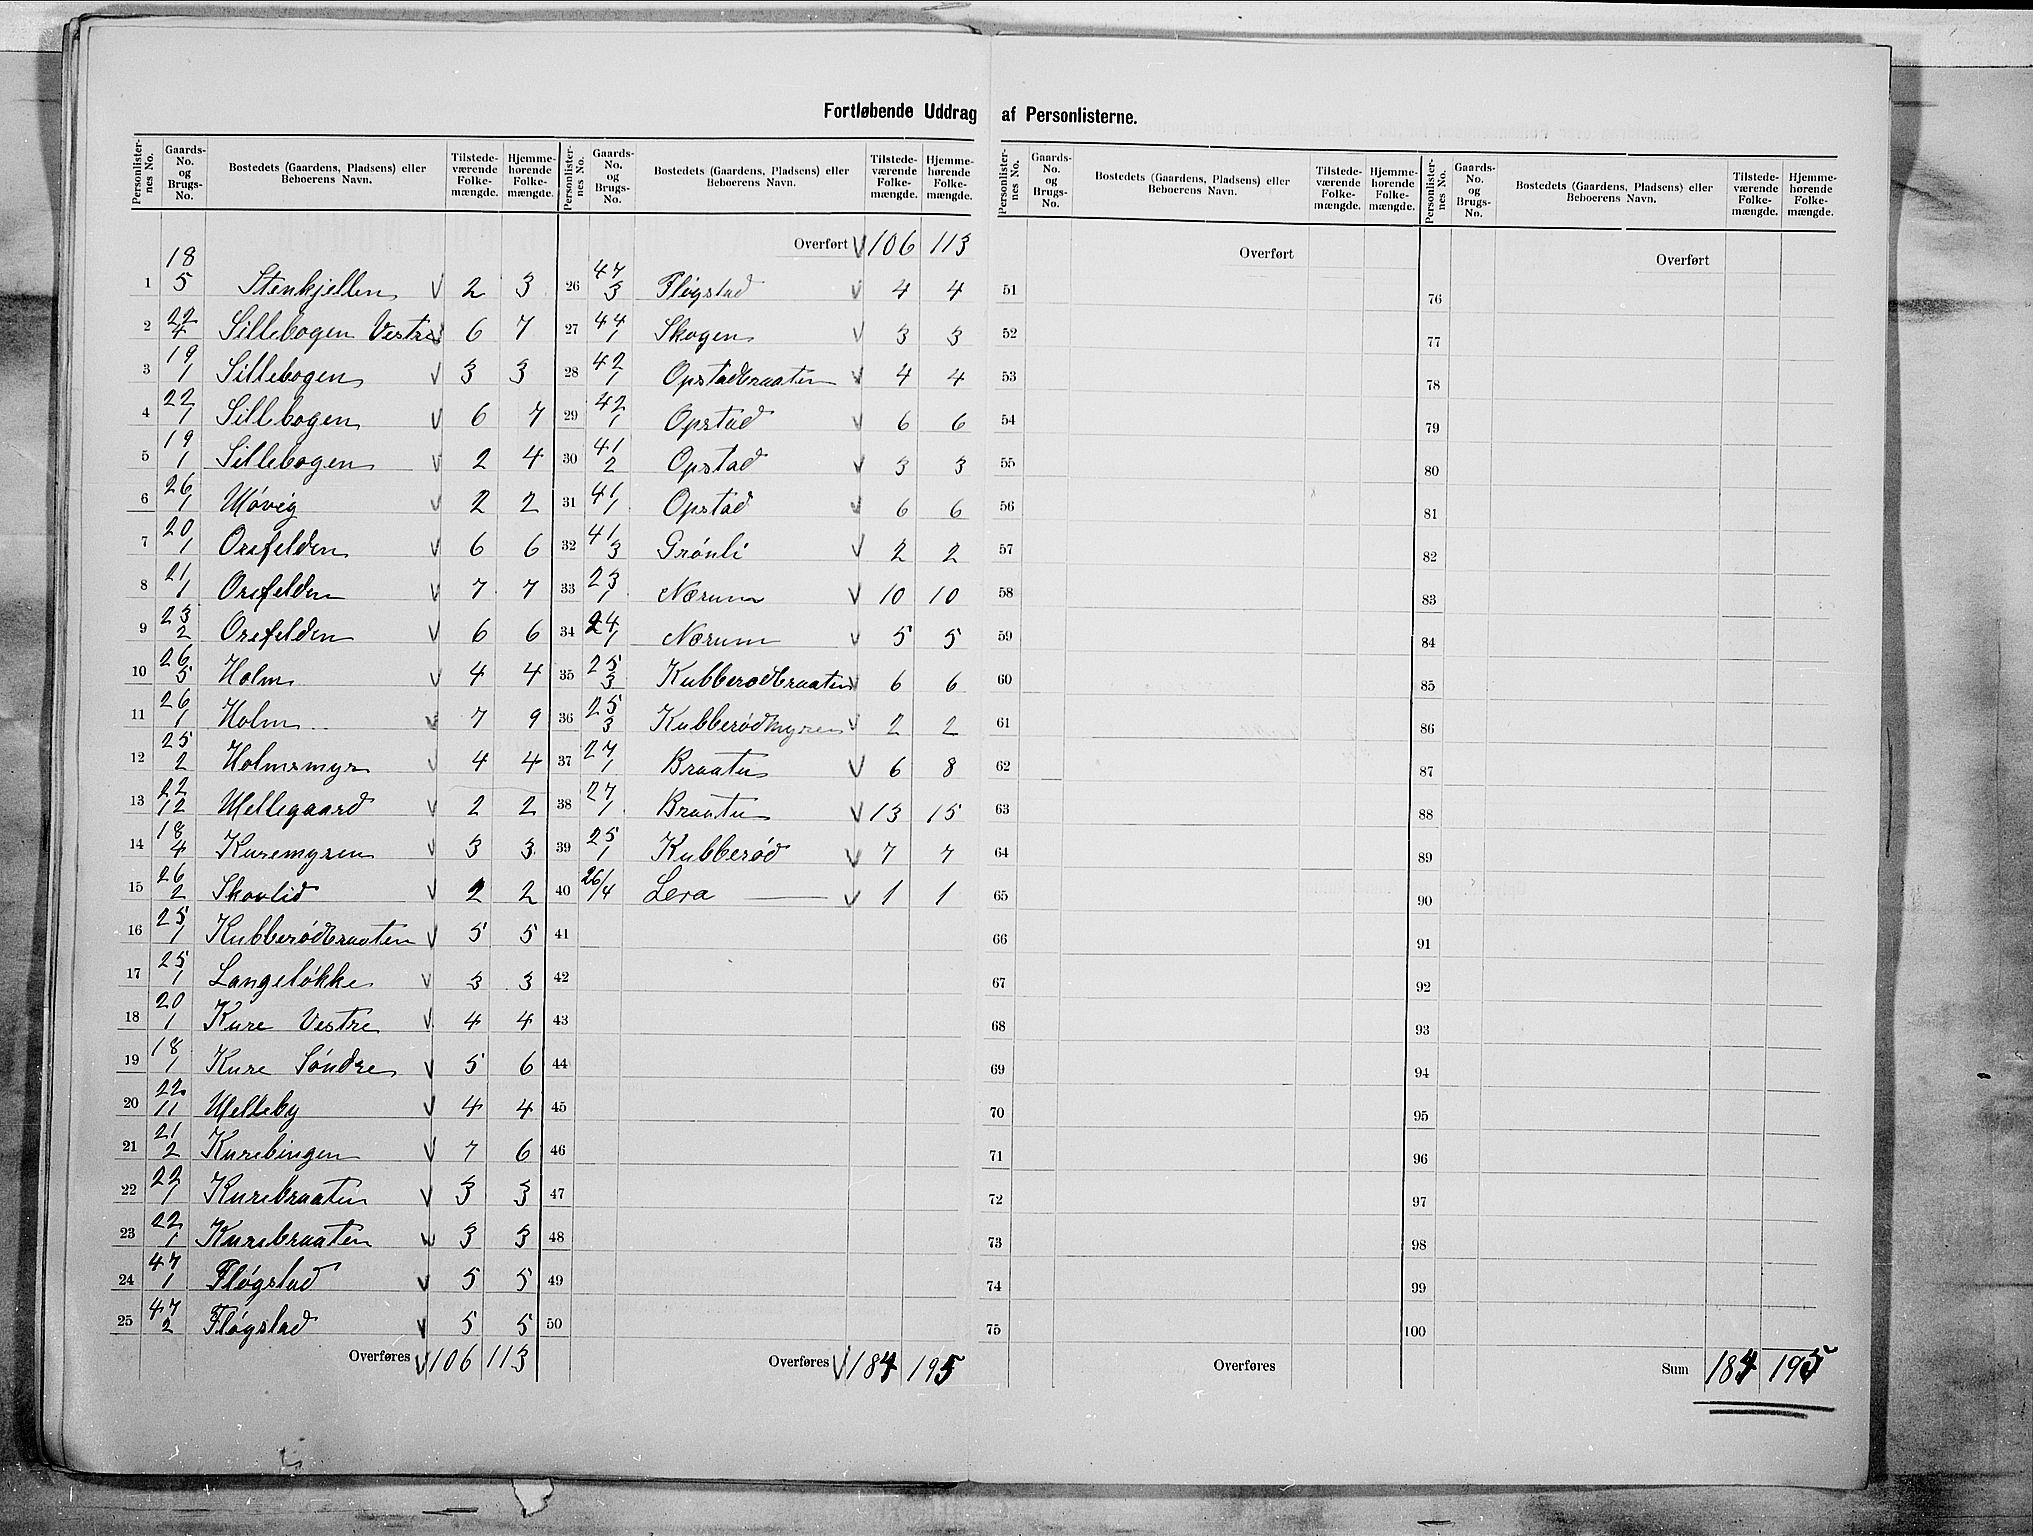 Fortløbende Uddrag af Personlisterne.
Personlister-nes No. | Gaards-No. og Brugs-No. | Bostedets (Gaardens, Pladsens) eller Beboerens Navn. | Tilstede-værende Folke-mængde. | Hjemme-hørende Folke-mængde.
1 18/5 Stenkjellen √ 2 3
2 22/4 Sillebogen Vestre √ 6 7
3 19/1 Sillebogen √ 3 3
4 22/1 Sillebogen √ 6 7
5 19/1 Sillebogen √ 2 4
6 26/1 Møvig √ 2 2
7 20/1 Orefelden √ 6 6
8 21/1 Orefelden √ 7 7
9 23/2 Orefelden √ 6 6
10 26/5 Holm √ 4 4
11 26/1 Holm √ 7 9
12 25/2 Holmsmyr √ 4 4
13 22/12 Mellegaard √ 2 2
14 18/4 Kuremyren √ 3 3
15 26/2 Skovlid √ 2 2
16 25/1 Kubberødbraaten √ 5 5
17 25/1 Langeløkke √ 3 3
18 20/1 Kure Vestre √ 4 4
19 18/1 Kure Søndre √ 5 6
20 22/11 Melleby √ 4 4
21 21/2 Kurebingen √ 7 6
22 22/1 Kurebraaten √ 3 3
23 22/1 Kurebraaten √ 3 3
24 47/1 Fløgstad √ 5 5
25 47/2 Fløgstad √ 5 5
Overføres √ 106 113
Personlister-nes No. | Gaards-No. og Brugs-No. | Bostedets (Gaardens, Pladsens) eller Beboerens Navn. | Tilstede-værende Folke-mængde. | Hjemme-hørende Folke-mængde.
Overført √ 106 113
26 47/3 Fløgstad √ 4 4
27 44/1 Skogen √ 3 3
28 42/1 Opstadbraaten √ 4 4
29 42/1 Opstad √ 6 6
30 41/2 Opstad √ 3 3
31 41/1 Opstad √ 6 6
32 41/3 Grønli √ 2 2
33 23/1 Nærum √ 10 10
34 24/1 Nærum √ 5 5
35 25/3 Kubberødbraaten √ 6 6
36 25/3 Kubberødmyren √ 2 2
37 27/1 Braaten √ 6 8
38 27/1 Braaten √ 13 15
39 25/1 Kubberød √ 7 7
40 26/4 Lera √ 1 1
41
42
43
44
45
46
47
48
49
50
Overføres √ 184 195
Personlister-nes No. | Gaards-No. og Brugs-No. | Bostedets (Gaardens, Pladsens) eller Beboerens Navn. | Tilstede-værende Folke-mængde. | Hjemme-hørende Folke-mængde.
Overført
51
52
53
54
55
56
57
58
59
60
61
62
63
64
65
66
67
68
69
70
71
72
73
74
75
Overføres
Personlister-nes No. | Gaards-No. og Brugs-No. | Bostedets (Gaardens, Pladsens) eller Beboerens Navn. | Tilstede-værende Folke-mængde. | Hjemme-hørende Folke-mængde.
Overført
76
77
78
79
80
81
82
83
84
85
86
87
88
89
90
91
92
93
94
95
96
97
98
99
100
Sum 184 195